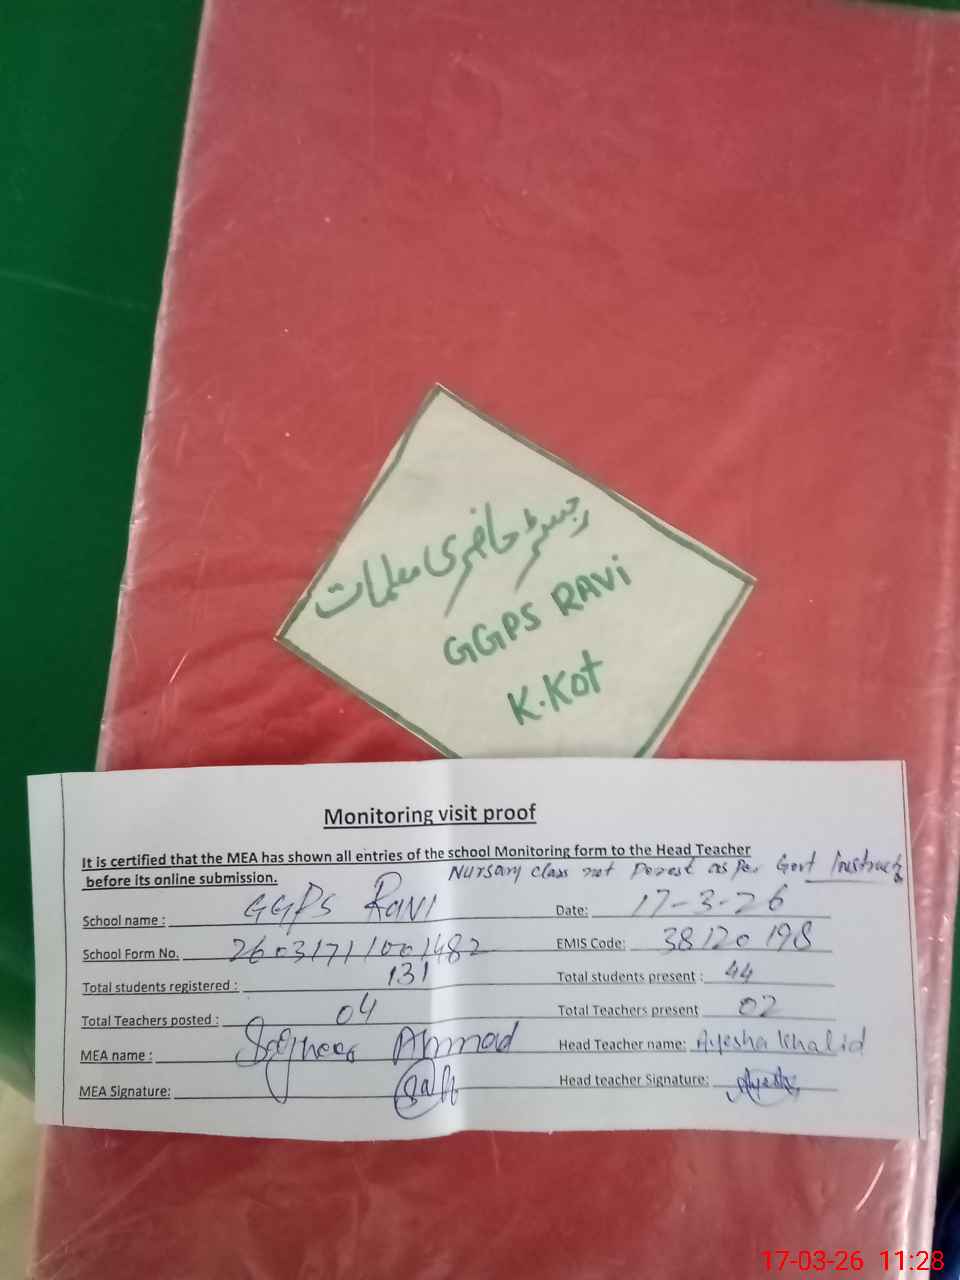 رجسٹر حاضری معلمات
GGPS RAVi
K.Kot
Monitoring visit proof
It is certified that the MEA has shown all entries of the school Monitoring form to the Head Teacher
before its online submission.
Nursary class not as Per Govt
School name : GGPS Ravi Date: 17-3-26
School Form No. 26031711001482 EMIS Code: 38120198
Total students registered : 131 Total students present : 44
Total Teachers posted : 04 Total Teachers present 02
MEA name : Ahmad Head Teacher name: Ayesha Khalid
MEA Signature: Head teacher Signature: Ayesha
17-03-26 11:28